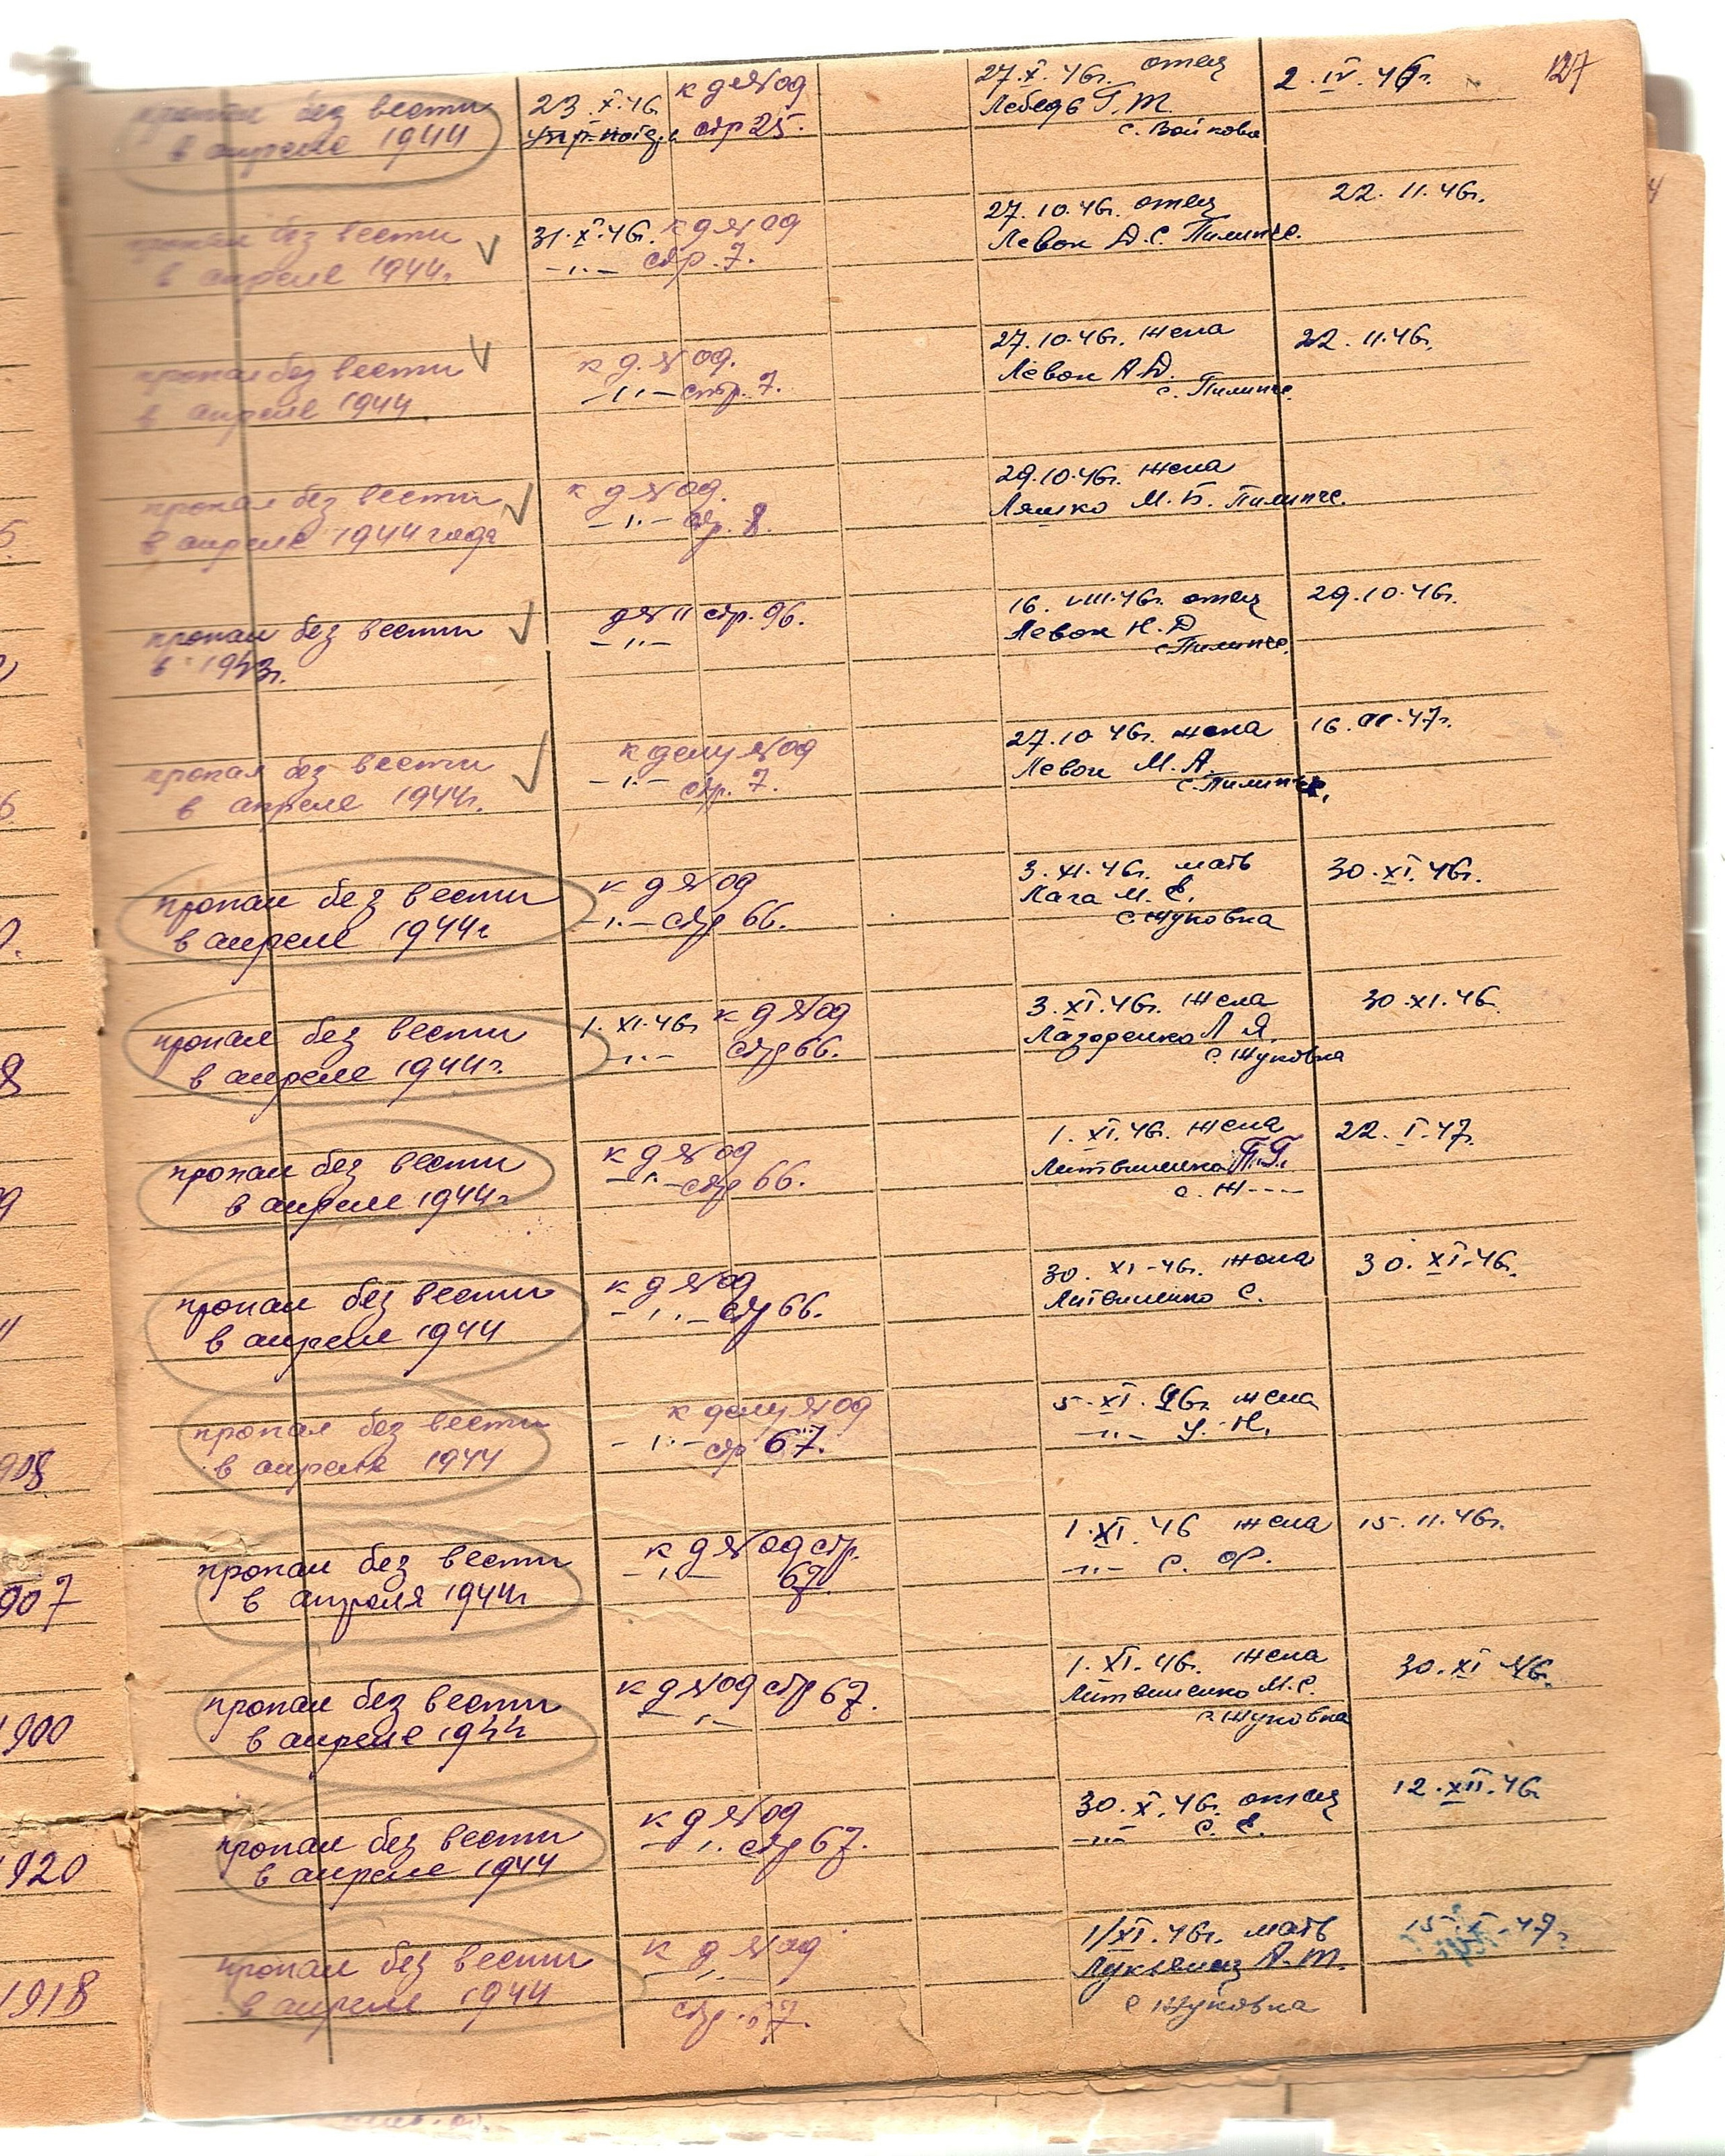 127
пропал без вести 23 X.46 к делу од 27.X.46г. отец 2.IV.46г.
в апреле 1944 стр 25. Лебедь Г.Т.
с. Войково
пропал без вести 31.X.46г. к д № од 27.10.46г. отец 22.11.46г.
в апреле 1944г. -"- стр. 7. Левон Д.С. Пилипче.
пропал без вести к д. № од. 27.10.46г. жена 22.11.46г.
в апреле 1944 -"- стр. 7. Левон А.Д.
с. Пилипче.
пропал без вести к д № од. 29.10.46г. жена
в апреле 1944 года -"- стр. 8. Ляшко М.Б. Пилипче.
пропал без вести д № 11 стр. 96. 16.VIII.46г. отец 29.10.46г.
в 1943г. -"- Левон Н.Д
с. Пилипче.
пропал без вести к делу № од 27.10 46г. жена 16. 47г.
в апреле 1944г. -"- стр. 7. Левон М.А.
с. Пилипче.
пропал без вести к д № од 3.XI.46г. мать 30.XI.46г.
в апреле 1944г -"- стр 66. Лага М.Е.
с Жуковка
пропал без вести 1.XI.46г к д № од 3.XI.46г. жена 30.XI.46
в апреле 1944г. -"- стр 66. Лазоренко Л Я.
с. Жуковка
пропал без вести к д № од 1.XI.46г. жена 22.I.47г.
в апреле 1944г -"- стр 66. Литвиненко П.Г.
с. Ж----
пропал без вести к д № од 30.XI-46г. жена 30.XI.46г.
в апреле 1944 -"- стр 66. Литвиненко С.
пропал без вести к делу № од 5.XI.46г. жена
в апреле 1944 -"- стр 67. -"- У.Н.
пропал без вести к д № од стр. 1.XI.46 жена 15.11.46г.
в апреля 1944г. -"- 67. -"- С. Ф.
пропал без вести к д № од стр 67. 1.XI.46г. жена 30.XI 46г.
в апреле 1944 -"- Литвиненко М.С.
с. Жуковка
пропал без вести к д № од 30.X.46г. отец 12.XII.46
в апреле 1944 -"- стр 67. -"- С. Е.
пропал без вести к д № од 1/XI.46г. мать
в апреле 1944 -"- Лукьянец А.Т.
стр. 67. с Жуковка
908
907
1900
1920
1918